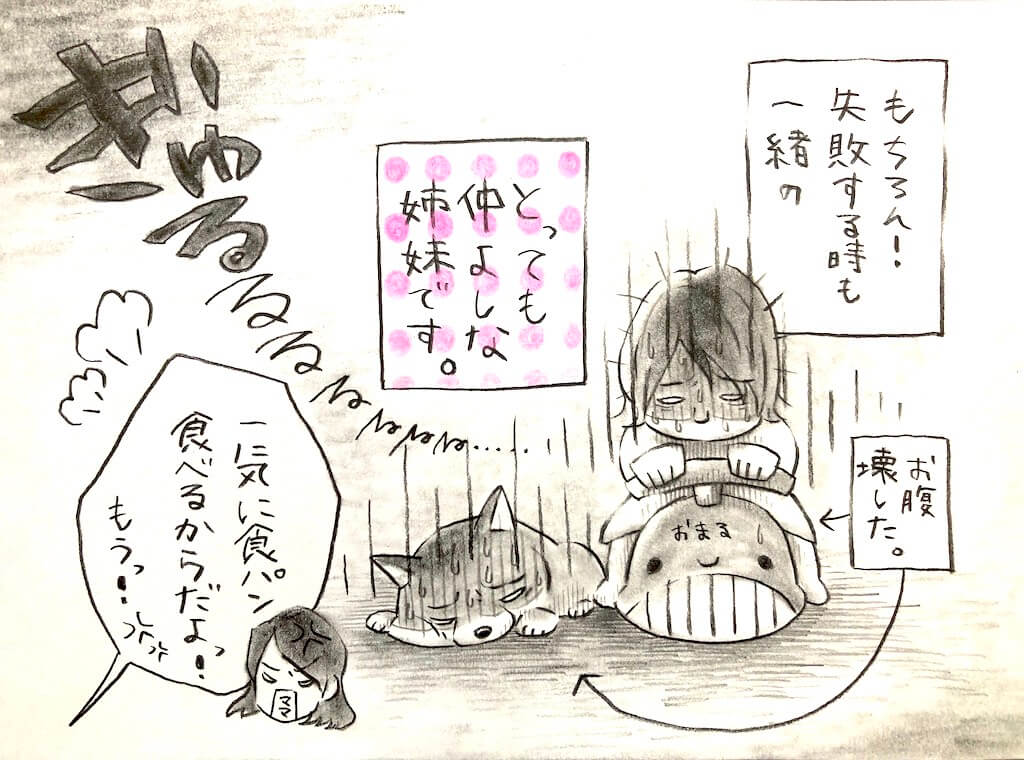 もちろん!
失敗する時も
一緒の
とっても
仲よしな
姉妹です。
ぎゅるるるるるるるるる.....
お腹
壊した。
おまる
一気に食パン
食べるからだよっ!
もうっ!
ママ